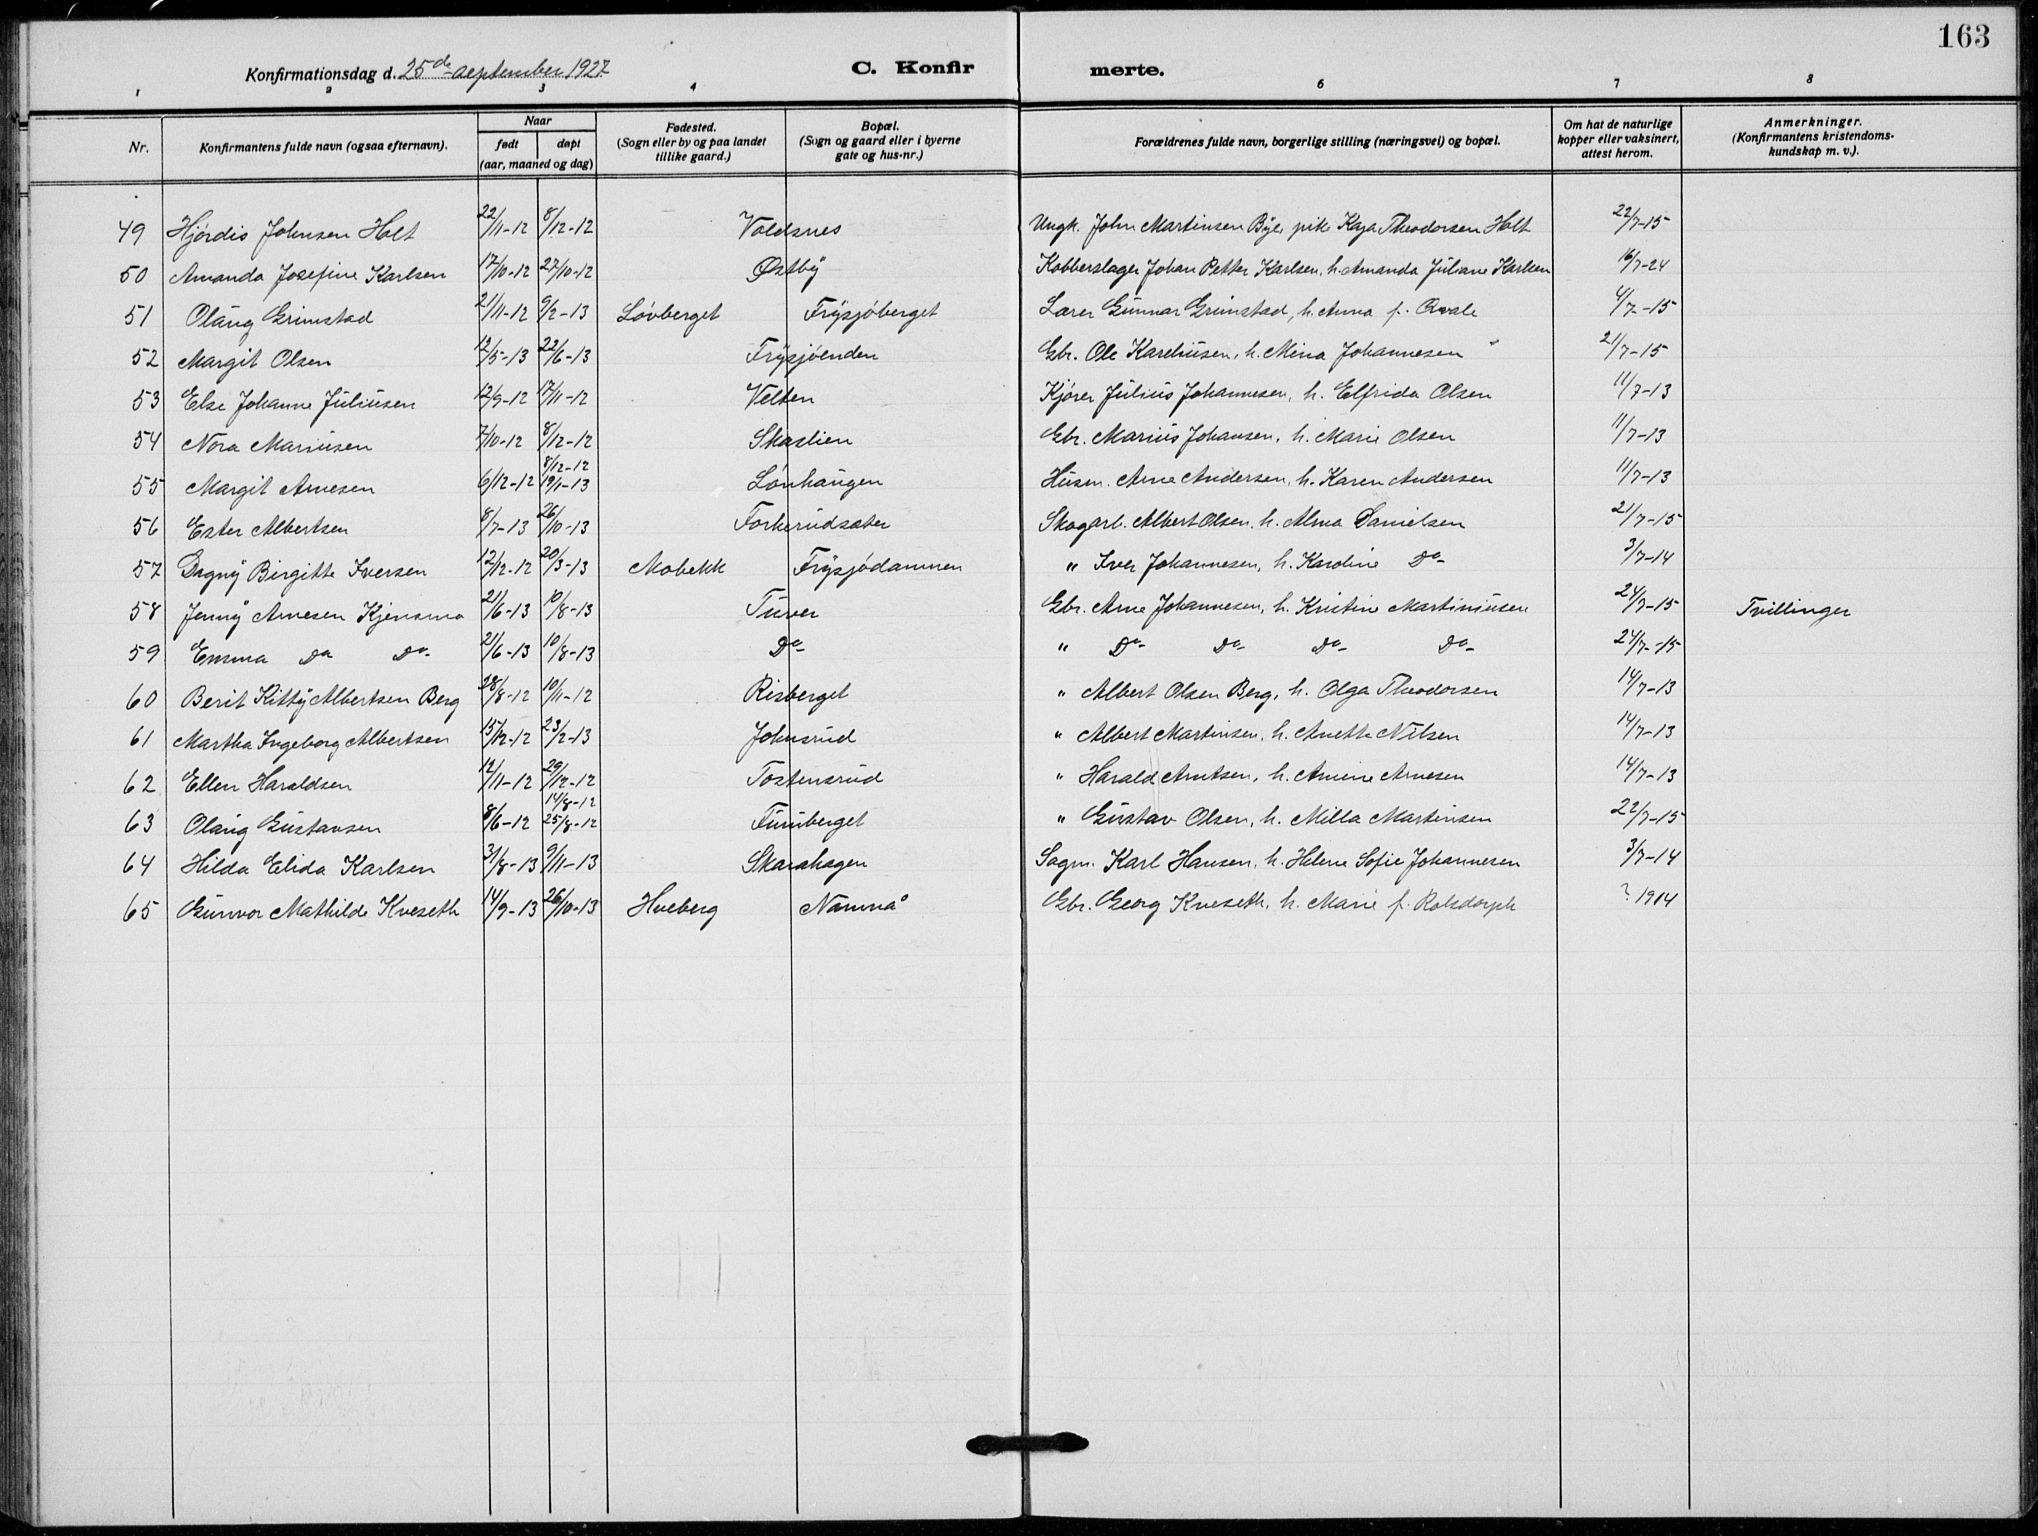 163
Konfirmationsdag d. 25de september 1927 C. Konfir merte.
1 2 3 4 6 7 8
Nr. Konfirmantens fulde navn (ogsaa efternavn). Naar født døpt (aar, maaned og dag) Fødested. (Sogn eller by og paa landet tillike gaard.) Bopæl. (Sogn og gaard eller i byerne gate og hus-nr.) Forældrenes fulde navn, borgerlige stilling (næringsvei) og bopæl. Om hat de naturlige kopper eller vaksinert, attest herom. Anmerkninger. (Konfirmantens kristendoms- kundskap m. v.).
49 Hjørdis Johnsen Holt 22/11-12 8/12-12 Voldsnes Ungk. John Martinsen Bye, pike Kaja Theodorsen Holt 22/7-15
50 Amanda Josefine Karlsen 17/10-12 27/10-12 Østby Kobberslager Johan Petter Karlsen, h. Amanda Juliane Karlsen 16/7-24
51 Olaug Grimstad 21/11-12 9/2-13 Løvberget Frysjøberget Lærer Gunnar Grimstad, h. Anna f. 4/7-15
52 Margit Olsen 12/5-13 22/6-13 Frysjøenden Gbr. Ole Kareliusen, h. Mina Johannesen 21/7-15
53 Else Johanne Juliusen 12/9-12 17/11-12 Velten Kjører Julius Johannesen, h. Elfrida Olsen 11/7-13
54 Nora Mariusen 7/10-12 8/12-12 Skaslien Gbr. Marius Johansen, h. Marie Olsen 11/7-13
55 Margit Arnesen 6/12-12 8/12-12 19/1-13 Lønhaugen Husm. Arne Andersen, h. Karen Andersen 11/7-13
56 Ester Albertsen 8/7-13 26/10-13 Forkerudsæter Skogarb. Albert Olsen, h. Alma Danielsen 21/7-15
57 Dagny Birgitte Iversen 12/12-12 20/3-13 Mobekk Frysjødammen " Iver Johannesen, h. Karoline Do- 3/7-14
58 Jenny Arnesen Kjensmo 21/6-13 10/8-13 Tuver Gbr. Arne Johannesen, h. Kristine Martiniusen 24/7-15 Tvillinger
59 Emma Do Do- 21/6-13 10/8-13 Do- " Do- Do- Do- Do- 24/7-15
60 Berit Kitty Albertsen Berg 28/8-12 10/11-12 Risberget " Albert Olsen Berg, h. Olga Theodorsen 14/7-13
61 Martha Ingeborg Albertsen 15/12-12 23/2-13 Johnsrud " Albert Martinsen, h. Anette Nilsen 14/7-13
62 Ellen Haraldsen 12/11-12 29/12-12 Tostensrud " Harald Arntsen, h. Amine Arnesen 14/7-13
63 Olaug Gustavsen 8/6-12 14/8-12 25/8-12 Furuberget " Gustav Olsen, h. Milla Martinsen 22/7-15
64 Hilda Elida Karlsen 31/8-13 9/11-13 Skarahagen Sagm. Karl Hansen, h. Helene Sofie Johannesen 3/7-14
65 Gunvor Mathilde Kveseth 14/9-13 26/10-13 Hveberg Namnå Gbr. Georg Kveseth, h. Marie f. Rolsdorph ? 1914